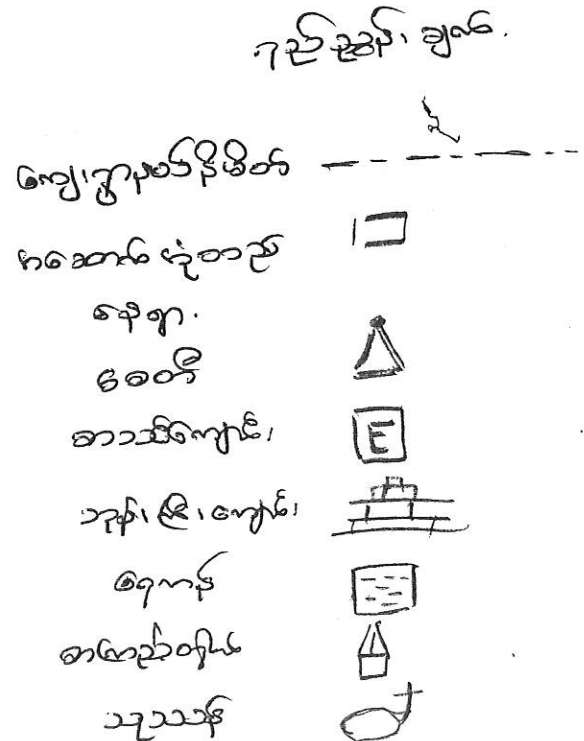 ရည်ညွှန်းချက်
ကျေးရွာနယ်နိမိတ်
အဆောက်အုံတည်
နေရာ
စေတီ
စာသင်ကျောင်း
E
ဘုန်းကြီးကျောင်း
ရေကန်
စာကြည့်တိုက်
သုသာန်